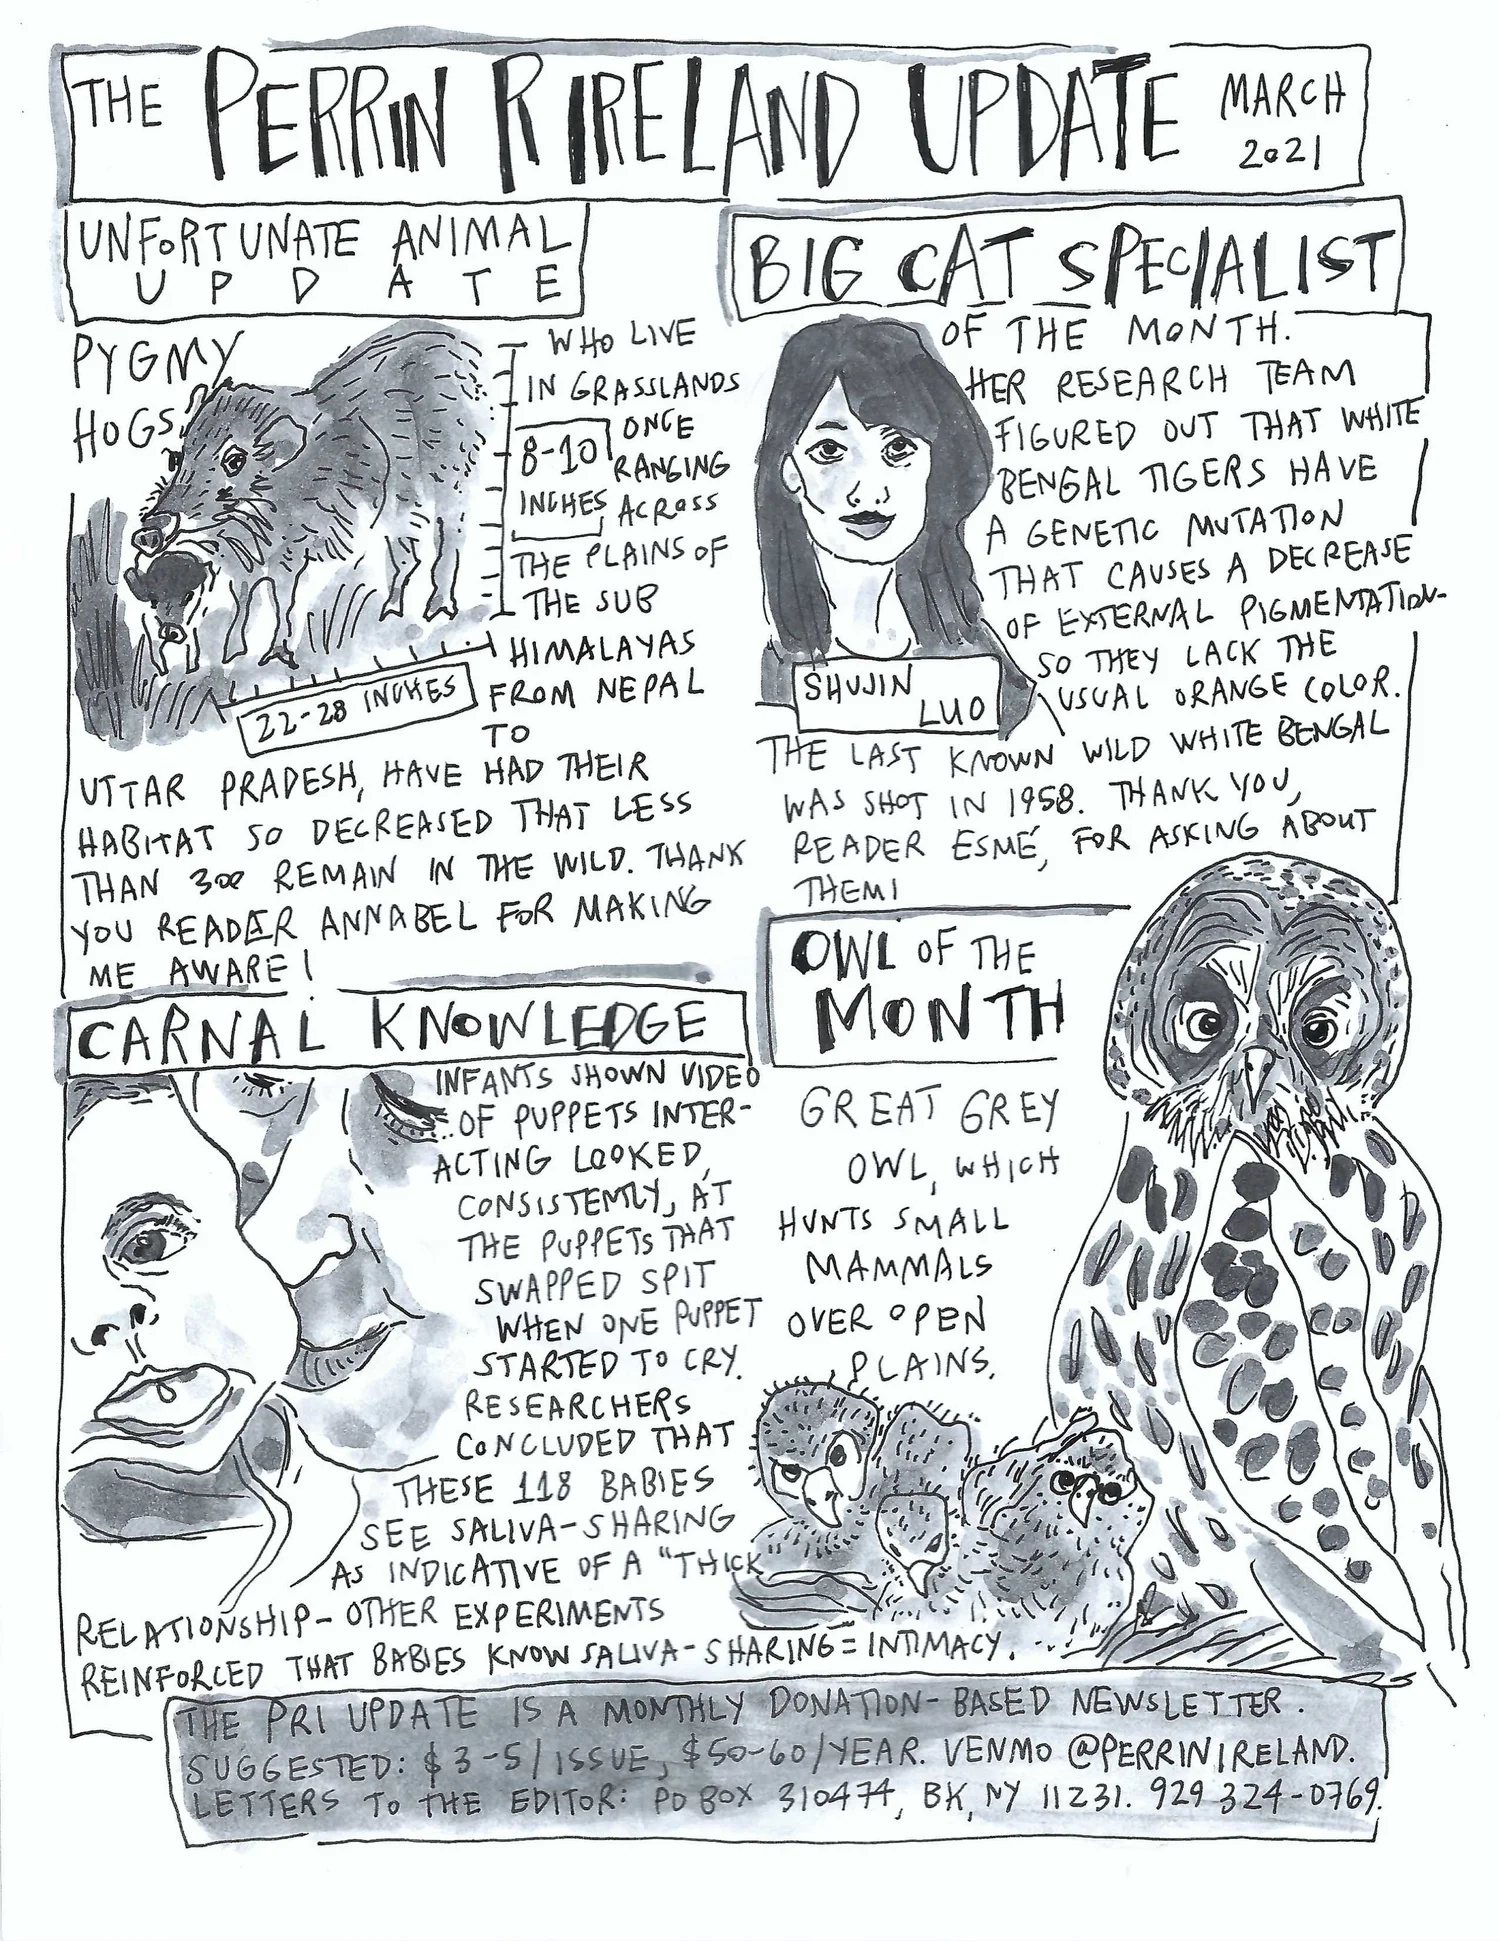 THE PERRIN R IRELAND UPDATE MARCH
2021
UNFORTUNATE ANIMAL
UPDATE
PYGMY
HOGS,
WHO LIVE
IN GRASSLANDS
ONCE
RANGING
ACROSS
THE PLAINS OF
THE SUB
HIMALAYAS
FROM NEPAL
TO
8-10
INCHES
22-28 INCHES
UTTAR PRADESH, HAVE HAD THEIR
HABITAT SO DECREASED THAT LESS
THAN 300 REMAIN IN THE WILD. THANK
YOU READER ANNABEL FOR MAKING
ME AWARE!
BIG CAT SPECIALIST
OF THE MONTH.
HER RESEARCH TEAM
FIGURED OUT THAT WHITE
BENGAL TIGERS HAVE
A GENETIC MUTATION
THAT CAUSES A DECREASE
OF EXTERNAL PIGMENTATION-
SO THEY LACK THE
USUAL ORANGE COLOR.
SHUJIN
LUO
THE LAST KNOWN WILD WHITE BENGAL
WAS SHOT IN 1958. THANK YOU,
READER ESMÉ, FOR ASKING ABOUT
THEM!
CARNAL KNOWLEDGE
INFANTS SHOWN VIDEO
OF PUPPETS INTER-
ACTING LOOKED,
CONSISTEMTLY, AT
THE PUPPETS THAT
SWAPPED SPIT
WHEN ONE PUPPET
STARTED TO CRY.
RESEARCHERS
CONCLUDED THAT
THESE 118 BABIES
SEE SALIVA-SHARING
AS INDICATIVE OF A "THICK
RELATIONSHIP- OTHER EXPERIMENTS
REINFORCED THAT BABIES KNOW SALIVA-SHARING = INTIMACY.
OWL OF THE
MONTH
GREAT GREY
OWL, WHICH
HUNTS SMALL
MAMMALS
OVER OPEN
PLAINS.
THE PRI UPDATE IS A MONTHLY DONATION-BASED NEWSLETTER.
SUGGESTED: $3-5/ISSUE, $50-60/YEAR. VENMO @PERRINIRELAND.
LETTERS TO THE EDITOR: PO BOX 310474, BK, NY 11231. 929 324-0769.